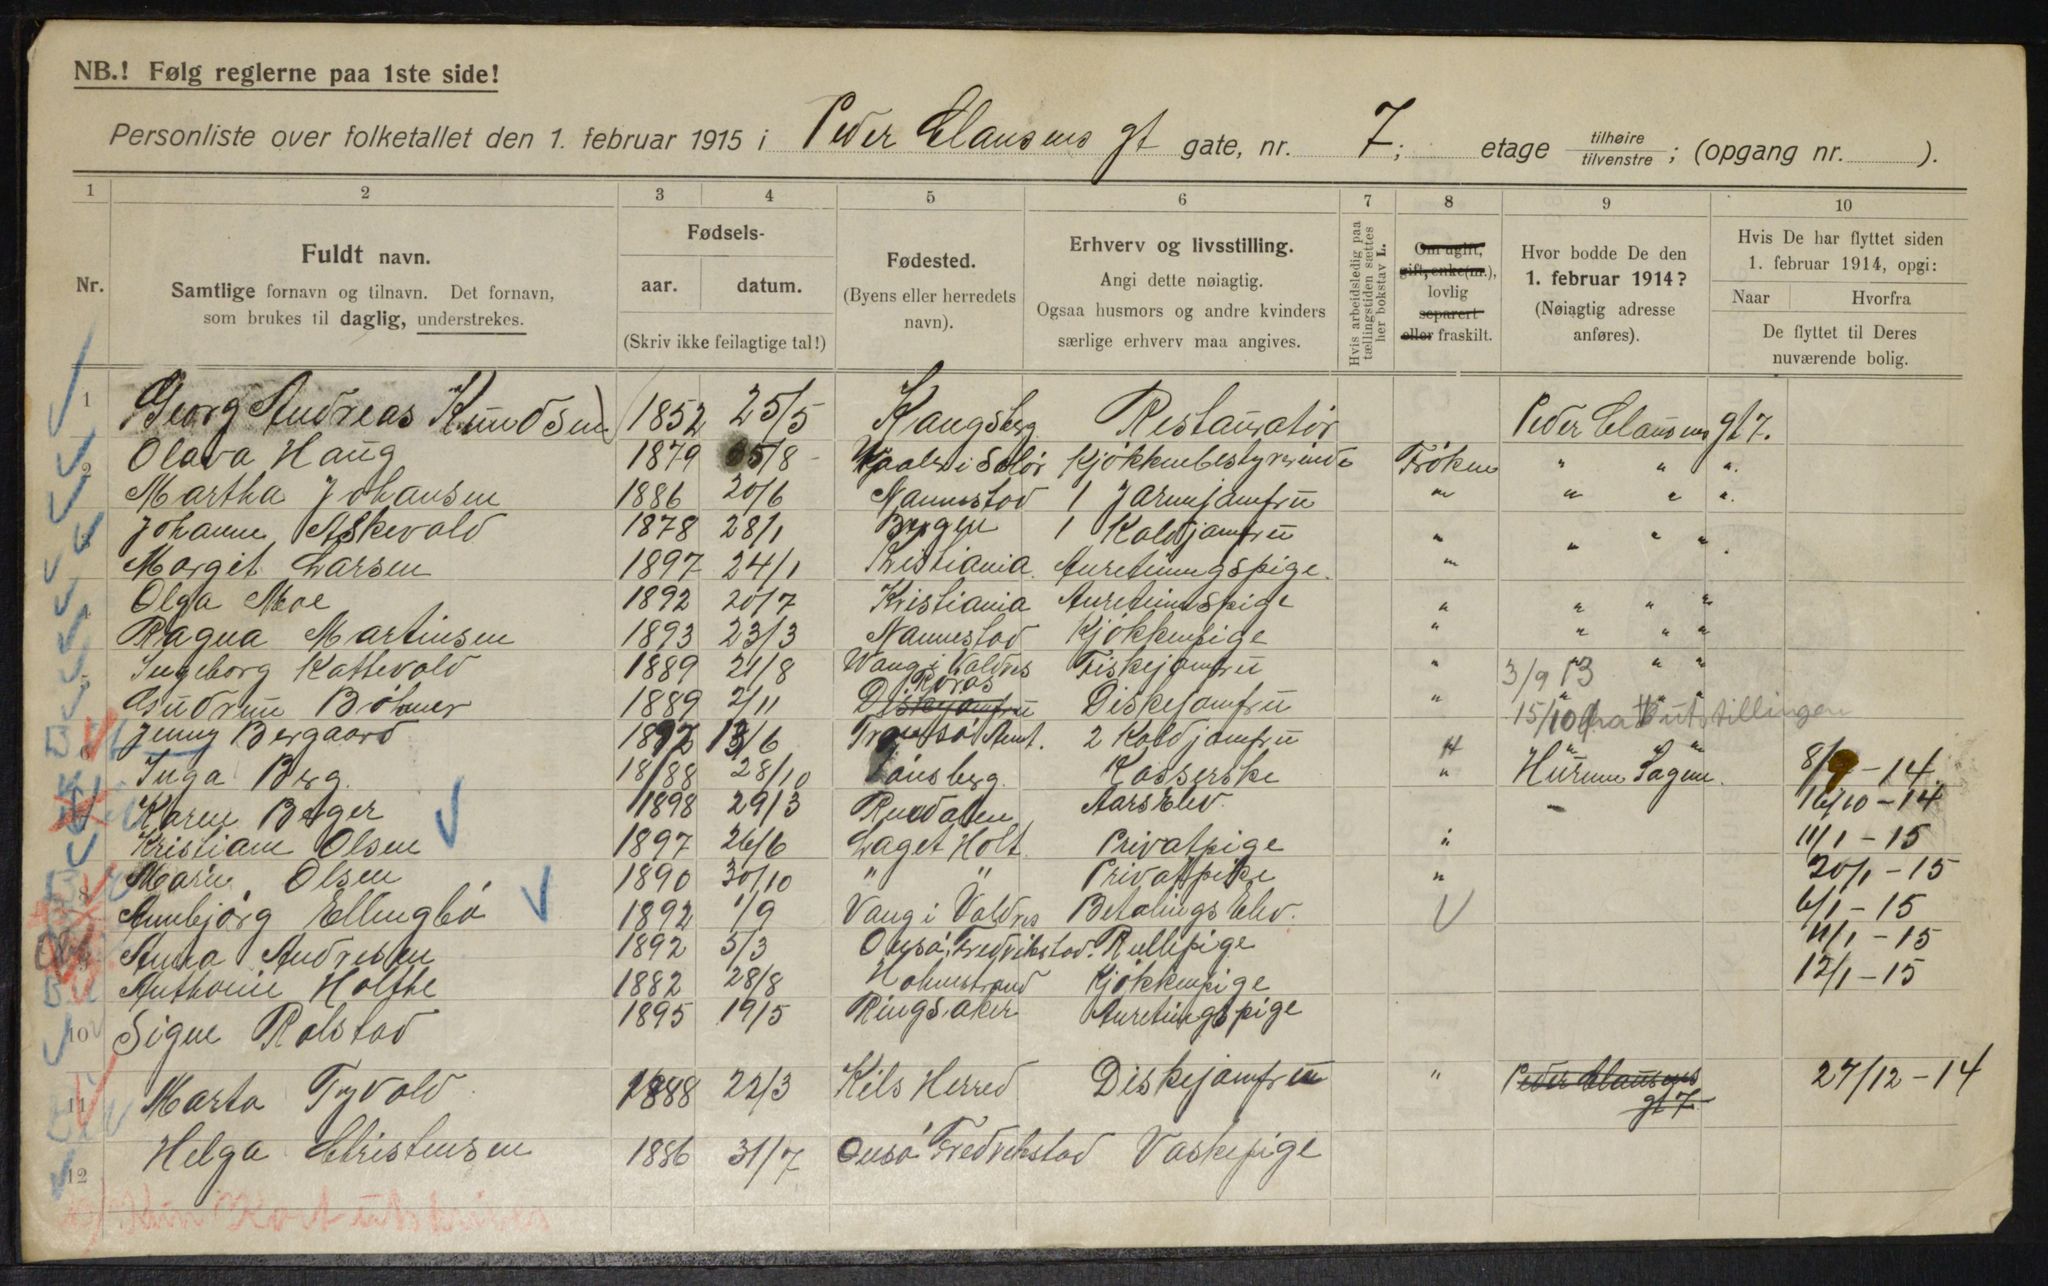 NB.! Følg reglerne paa 1ste side!
Personliste over folketallet den 1. februar 1915 i Peder Clausens gt gate, nr. 7; etage tilhøire tilvenstre ; (opgang nr. ).
1 2 3 4 5 6 7 8 9 10
Nr.
Fuldt navn.
Samtlige fornavn og tilnavn. Det fornavn,
som brukes til daglig, understrekes.
Fødsels-
aar. datum.
(Skriv ikke feilagtige tal!)
Fødested.
(Byens eller herredets
navn).
Erhverv og livsstilling.
Angi dette nøiagtig.
Ogsaa husmors og andre kvinders
særlige erhverv maa angives.
Hvis arbeidsledig paa
tællingstiden sættes
her bokstav L.
Om ugift,
gift, enke(m.),
lovlig
separert
eller fraskilt.
Hvor bodde De den
1. februar 1914?
(Nøiagtig adresse
anføres).
Hvis De har flyttet siden
1. februar 1914, opgi:
Naar Hvorfra
De flyttet til Deres
nuværende bolig.
1 Georg Andreas Knudsen 1852 25/5 Kongsberg Restauratør Peder Clausens gt 7.
2 Olava Haug 1879 /8 i Solør Kjøkkenbestyrerinde Frøken " " "
Martha Johansen 1886 20/6 Nannestad 1 Jomfru " " " "
3 Johanne Askevold 1878 28/1 Bergen 1 Koldjomfru " " " "
Margit Larsen 1897 24/1 Kristiania Anretningspige "
4 Olga Moe 1892 20/7 Kristiania Anretningspige " " " "
Ragna Martinsen 1893 23/3 Nannestad Kjøkkenpige " " " "
5 Ingeborg Kattevold 1889 21/8 Wang i Valdres Fiskejomfru " 3/9 13 " "
Gudrun Böhmer 1889 2/11 Diskejomfru Røros Diskejomfru " 15/10 fra utstillingen
6 Jenny Bergaard 1892 13/6 Tromsø Amt. 2 Koldjomfru "
Inga Berg. 1888 28/10 Tønsberg Kasserske " 8/9-14
7 Karen Berger 1898 29/3 Aars Elev. 16/10-14
Kristiane Olsen 1897 26/6 Laget Holt. Privatpige " 11/1-15
8 Marie Olsen 1890 30/10 " " Privatpike " 20/1-15
Annbjørg Ellingbø 1892 1/9 Vang i Valdres Betalings Elev. 6/1-15
9 Anna Andresen 1892 5/3 Onsø, Fredrikstad. Rullepige 11/1-15
Anthonie Holthe 1882 28/8 Holmestrand Kjøkkenpige 12/1-15
10 Signe Rolstad 1895 19/5 Ringsaker Anretningspige
11 Marta Tyvold 1888 22/3 Kils Herred Diskejomfru " Peder Clausens gt 7. 27/12-14
12 Helga Christensen 1886 31/7 Onsø Fredrikstad Vaskepige